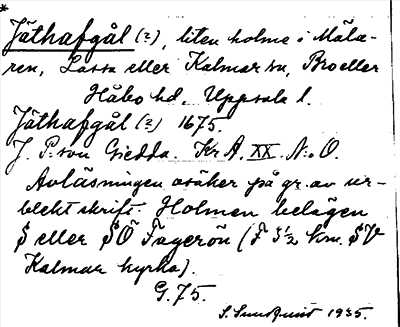 *
Jäthafgål (?), liten holme i Mäla-
ren, Lassa eller Kalmar sn, Bro eller
Håbo hd. Uppsala l.
Jäthafgål (?) 1675.
J. P:son Gedda. Kr A. XX. N:o O.
Avläsningen osäker på gr. av ur-
blekt skrift. Holmen belägen
S eller SÖ Fagerön (F 3½ km. SV
Kalmar kyrka).
G. 75.
S. Sundquist 1935.